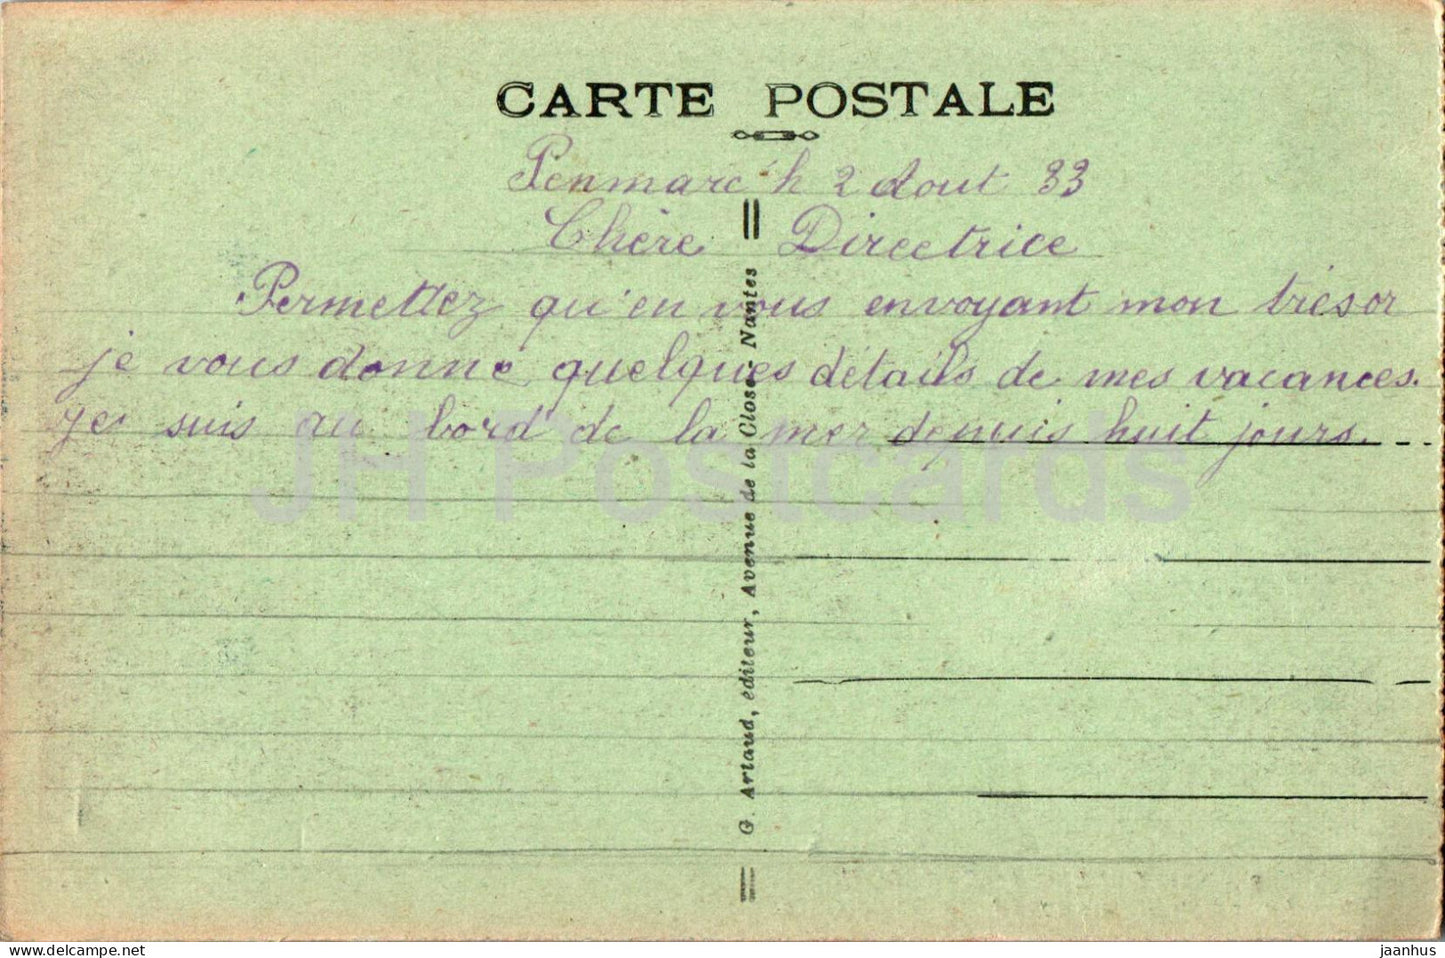 CARTE POSTALE
Penmarc'h 2 Aout 33
Chère Directrice
Permettez qu'en vous envoyant mon trésor
je vous donne quelques détails de mes vacances.
Je suis au bord de la mer depuis huit jours.
G. Artaud, éditeur, Avenue de la Close - Nantes
JH Postcards
delcampe.net
jaanhus